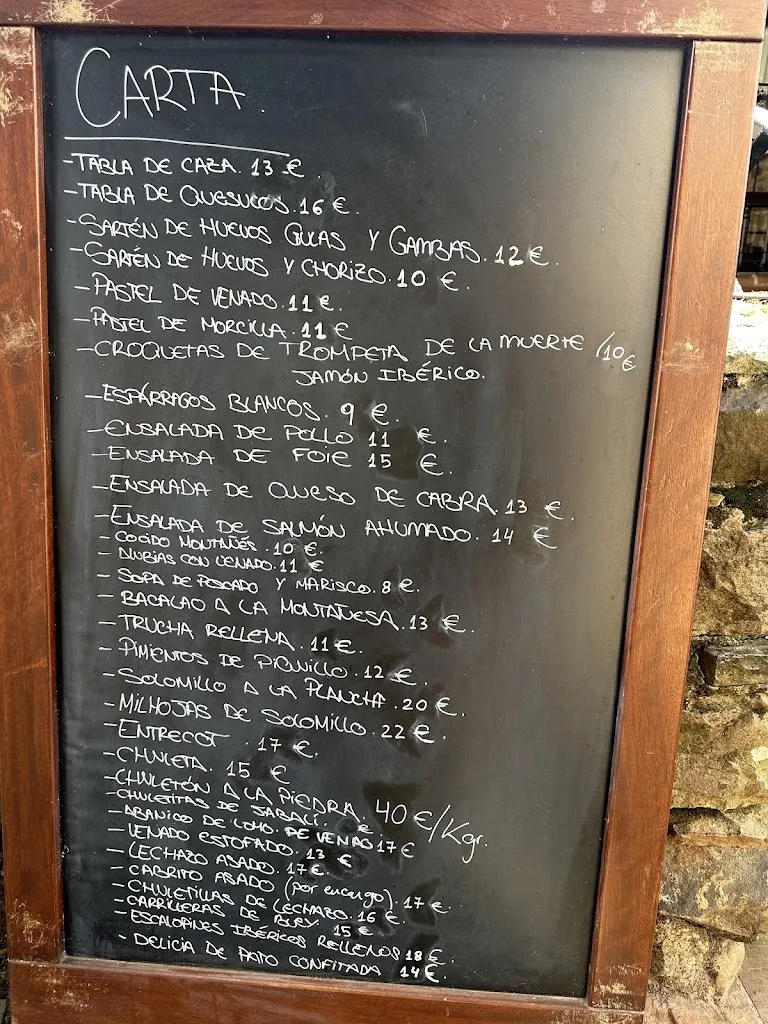 CARTA
-TABLA DE CAZA. 13 €.
-TABLA DE QUESUCOS. 16 €.
-SARTÉN DE HUEVOS GULAS Y GAMBAS. 12 €.
-SARTÉN DE HUEVOS Y CHORIZO. 10 €.
-PASTEL DE VENADO. 11 €.
-PASTEL DE MORCILLA. 11 €
-CROQUETAS DE TROMPETA DE LA MUERTE /10€
JAMÓN IBÉRICO.
-ESPÁRRAGOS BLANCOS. 9 €.
-ENSALADA DE POLLO 11 €.
-ENSALADA DE FOIE 15 €.
-ENSALADA DE QUESO DE CABRA. 13 €.
-ENSALADA DE SALMÓN AHUMADO. 14 €
-COCIDO MONTAÑÉS. 10 €.
-ALUBIAS CON VENADO. 11 €
-SOPA DE PESCADO Y MARISCO. 8 €.
-BACALAO A LA MONTAÑESA. 13 €.
-TRUCHA RELLENA. 11 €.
-PIMIENTOS DE PIQUILLO. 12 €.
-SOLOMILLO A LA PLANCHA. 20 €.
-MILHOJAS DE SOLOMILLO. 22 €.
-ENTRECOT. 17 €.
-CHULETA. 15 €
-CHULETÓN A LA PIEDRA. 40 €/Kgr.
-CHULETITAS DE JABALÍ. €
-ABANICO DE LOMO DE VENADO 17 €
-VENADO ESTOFADO. 13 €
-LECHAZO ASADO. 17 €.
-CABRITO ASADO (por encargo). 17 €.
-CHULETILLAS DE LECHAZO. 16 €.
-CARRILLERAS DE BUEY. 15 €.
-ESCALOPINES IBÉRICOS RELLENOS 18 €.
-DELICIA DE PATO CONFITADA 14 €.